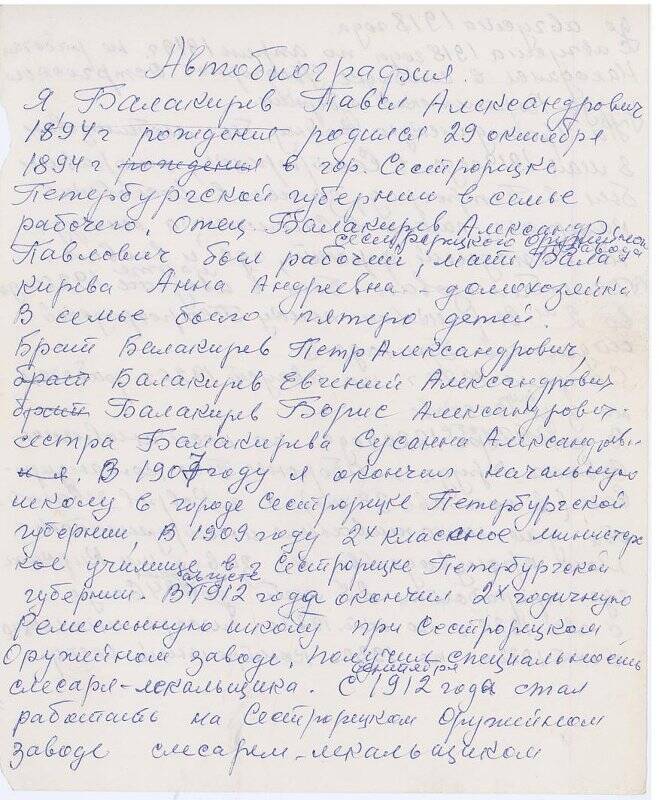 Автобиография.
Я, Балакирев Павел Александрович
1894г рождения родился 29 октября
1894 г рождения в гор. Сестрорецке
Петербургской губернии в семье
рабочего, отец Балакирев Александр
Сестрорецкого Оружейного завода
Павлович был рабочий, мать Бала-
кирева Анна Андреевна домохозяйка
В семье было пятеро детей.
Брат Балакирев Петр Александрович,
брат Балакирев Евгений Александрович
брат Балакирев Борис Александрович.
сестра Балакирева Сусанна Александров-
на. В 1907 году я окончил начальную
школу в городе Сестрорецке Петербургской
губернии, В 1909 году 2х классное министерс
кое училище в г Сестрорецке Петербургской
августе
губернии. В 1912 года окончил 2х годичную
Ремесленную школу при Сестрорецком
Оружейном заводе, получил специальность
сентября
слесаря-лекальщика. С 1912 года стал
работать на Сестрорецком Оружейном
заводе слесарем-лекальщиком